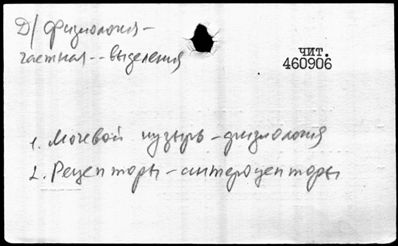 Д/ физиология -
частная -- выделения
чит.
460906
1. Мочевой пузырь - физиология
2. Рецепторы - интероцепторы